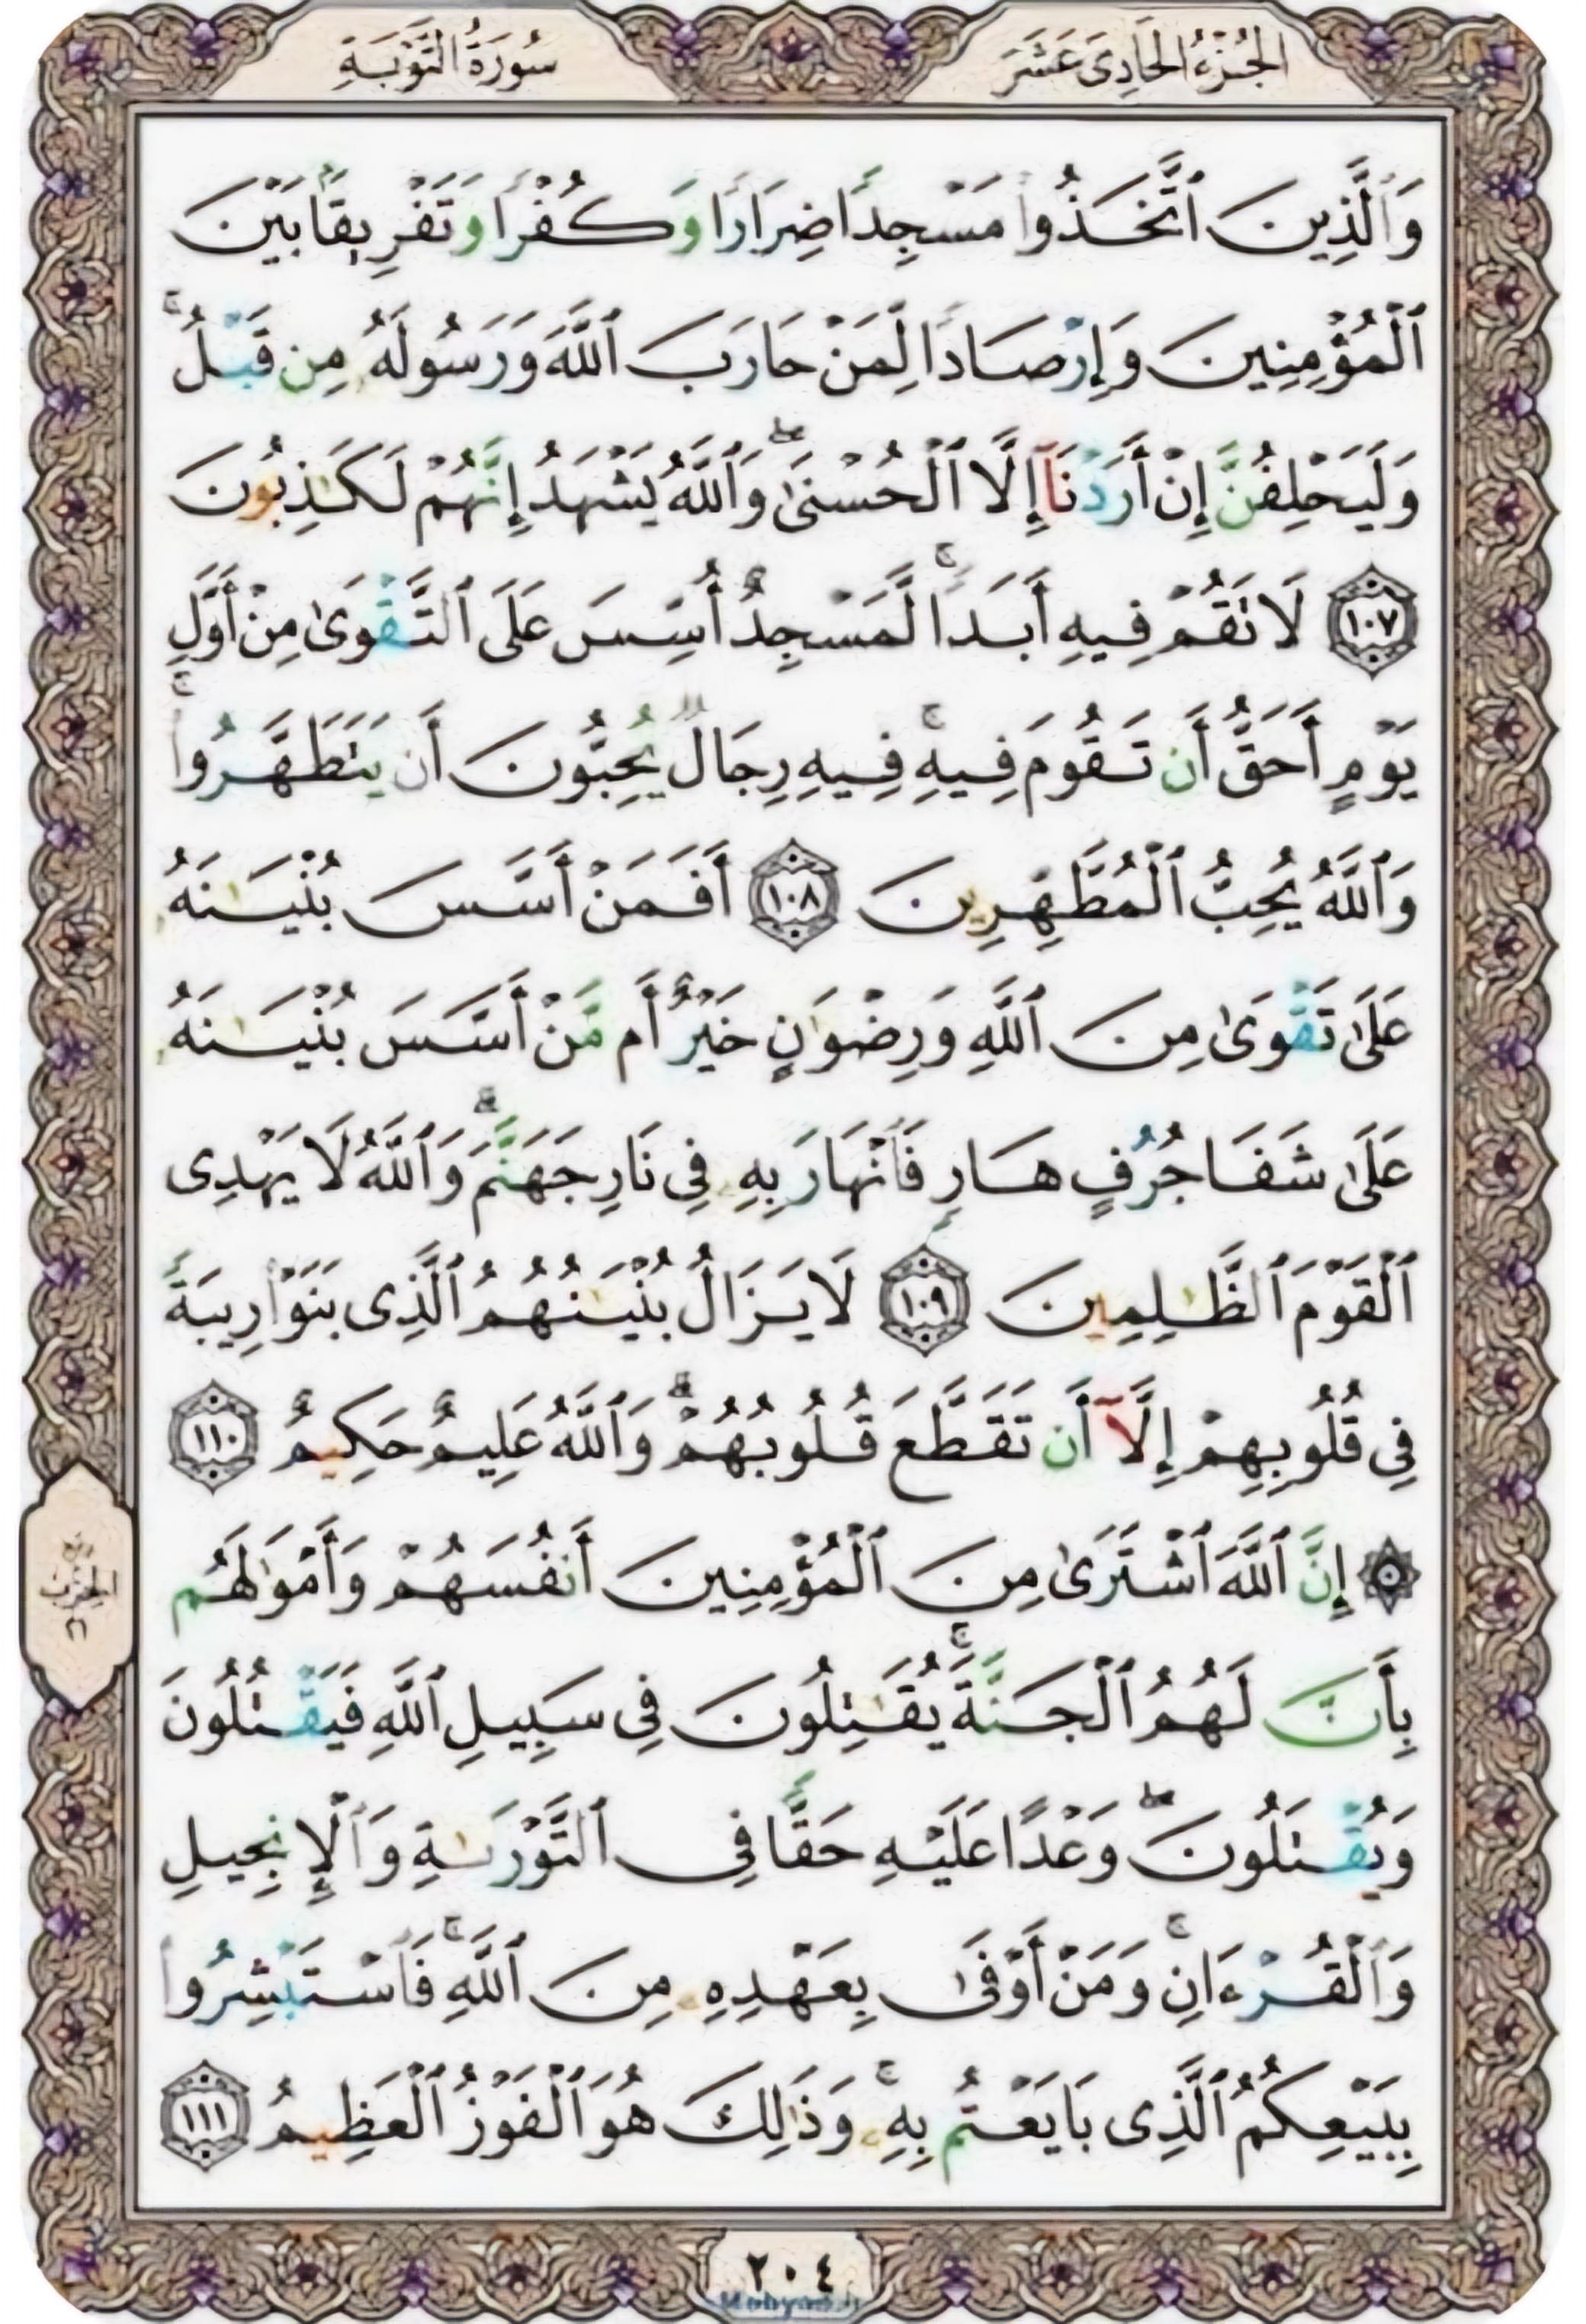 الجزء الحادي عشر
سورة التوبة
وَٱلَّذِينَ ٱتَّخَذُوا۟ مَسْجِدًا ضِرَارًا وَكُفْرًا وَتَفْرِيقًۢا بَيْنَ
ٱلْمُؤْمِنِينَ وَإِرْصَادًا لِّمَنْ حَارَبَ ٱللَّهَ وَرَسُولَهُۥ مِن قَبْلُ ۚ
وَلَيَحْلِفُنَّ إِنْ أَرَدْنَآ إِلَّا ٱلْحُسْنَىٰ ۖ وَٱللَّهُ يَشْهَدُ إِنَّهُمْ لَكَـٰذِبُونَ
١٠٧ لَا تَقُمْ فِيهِ أَبَدًا ۚ لَّمَسْجِدٌ أُسِّسَ عَلَى ٱلتَّقْوَىٰ مِنْ أَوَّلِ
يَوْمٍ أَحَقُّ أَن تَقُومَ فِيهِ ۚ فِيهِ رِجَالٌ يُحِبُّونَ أَن يَتَطَهَّرُوا۟ ۚ
وَٱللَّهُ يُحِبُّ ٱلْمُطَّهِّرِينَ ١٠٨ أَفَمَنْ أَسَّسَ بُنْيَـٰنَهُۥ
عَلَىٰ تَقْوَىٰ مِنَ ٱللَّهِ وَرِضْوَٰنٍ خَيْرٌ أَم مَّنْ أَسَّسَ بُنْيَـٰنَهُۥ
عَلَىٰ شَفَا جُرُفٍ هَارٍ فَٱنْهَارَ بِهِۦ فِى نَارِ جَهَنَّمَ ۗ وَٱللَّهُ لَا يَهْدِى
ٱلْقَوْمَ ٱلظَّـٰلِمِينَ ١٠٩ لَا يَزَالُ بُنْيَـٰنُهُمُ ٱلَّذِى بَنَوْا۟ رِيبَةً
فِى قُلُوبِهِمْ إِلَّآ أَن تَقَطَّعَ قُلُوبُهُمْ ۗ وَٱللَّهُ عَلِيمٌ حَكِيمٌ ١١٠
۞ إِنَّ ٱللَّهَ ٱشْتَرَىٰ مِنَ ٱلْمُؤْمِنِينَ أَنفُسَهُمْ وَأَمْوَٰلَهُم
بِأَنَّ لَهُمُ ٱلْجَنَّةَ ۚ يُقَـٰتِلُونَ فِى سَبِيلِ ٱللَّهِ فَيَقْتُلُونَ
وَيُقْتَلُونَ ۖ وَعْدًا عَلَيْهِ حَقًّا فِى ٱلتَّوْرَىٰةِ وَٱلْإِنجِيلِ
وَٱلْقُرْءَانِ ۚ وَمَنْ أَوْفَىٰ بِعَهْدِهِۦ مِنَ ٱللَّهِ ۚ فَٱسْتَبْشِرُوا۟
بِبَيْعِكُمُ ٱلَّذِى بَايَعْتُم بِهِۦ ۚ وَذَٰلِكَ هُوَ ٱلْفَوْزُ ٱلْعَظِيمُ ١١١
٢٠٤